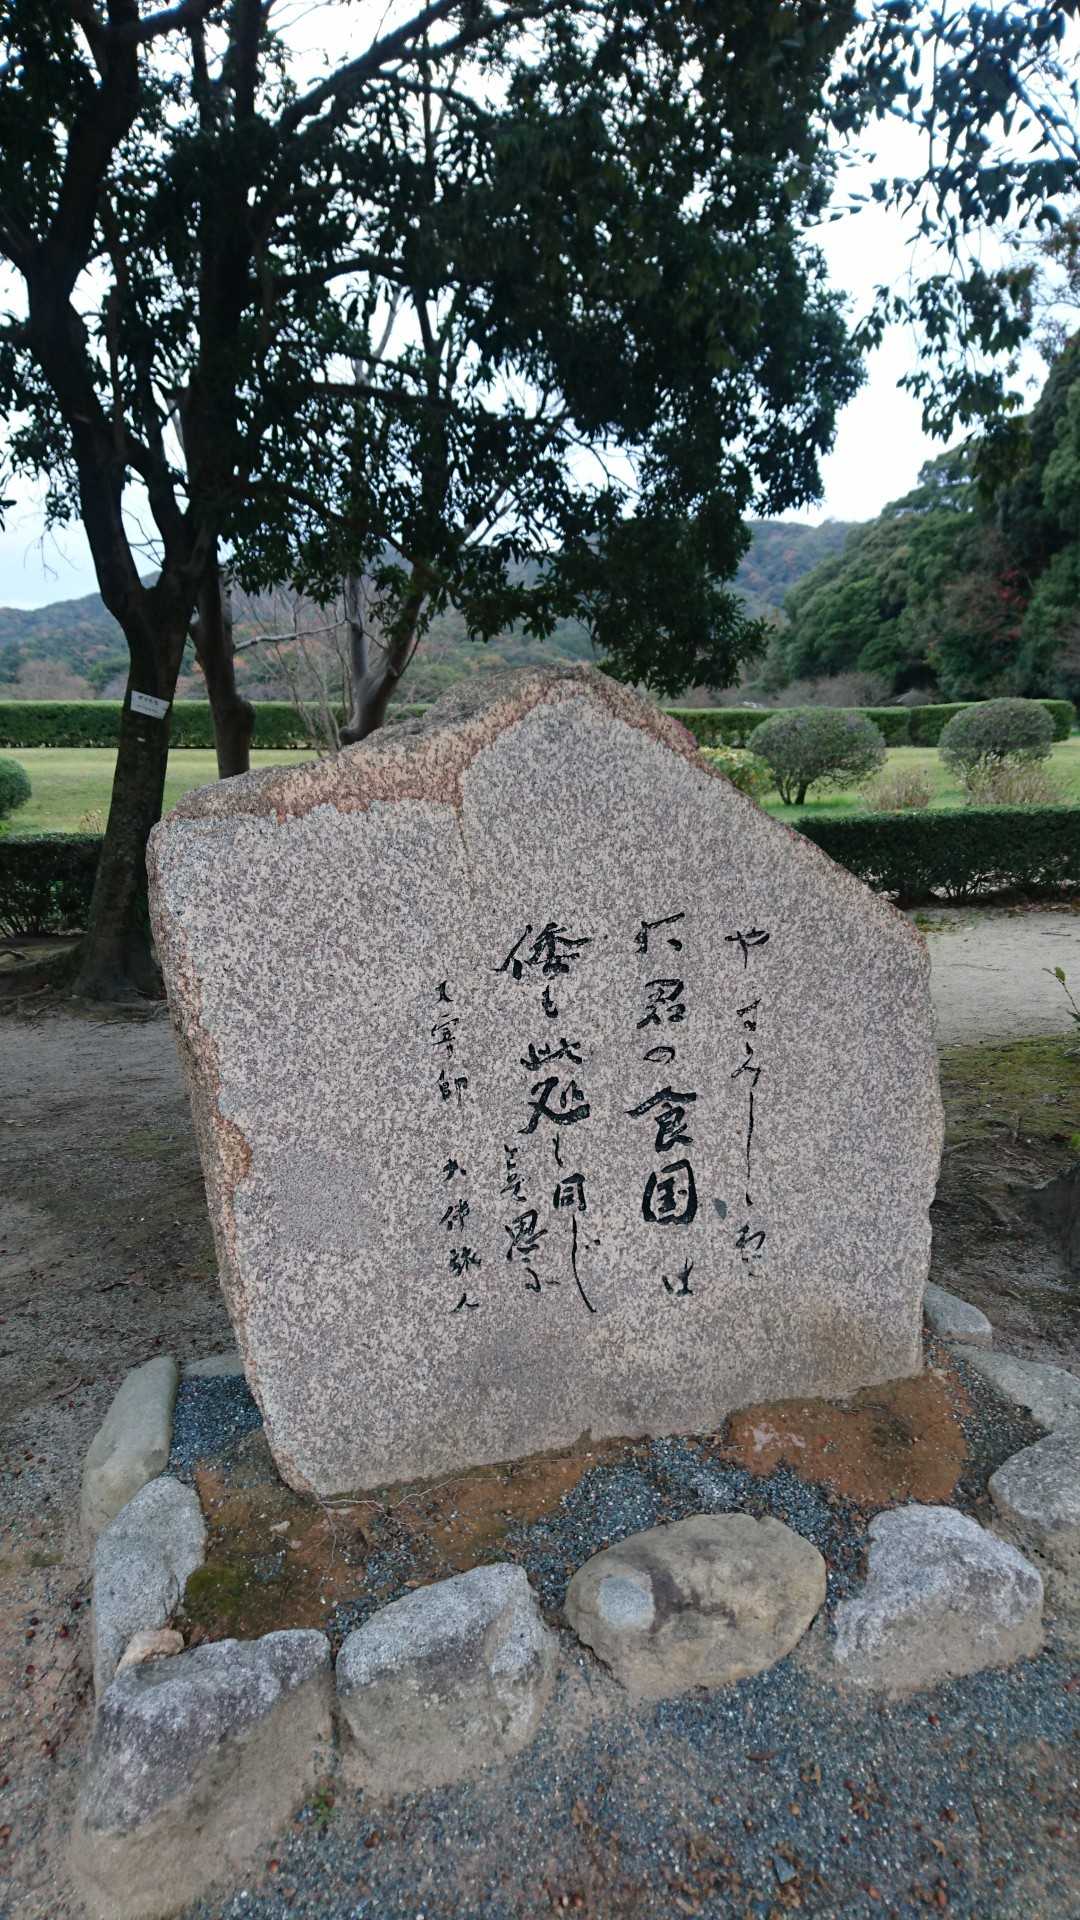 やすみしゝわご
大君の食国は
倭も此処も同じ
とぞ思ふ
大宰帥 大伴旅人